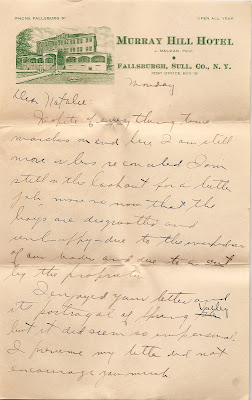 PHONE FALLSBURG 91
OPEN ALL YEAR
MURRAY HILL HOTEL
FALLSBURGH, SULL. CO., N. Y.
POST OFFICE BOX 18
Monday
Dear Natalie:
Despite of everything time
marches on and here I am still
more or less reconciled. I am
still on the lookout for a better
job more so now that the
boys are disgruntled and
unhappy due to the
of our leader and due to a cut
by the proprietor.
I enjoyed your letter and
its portrayal of Spring Valley
but it did seem so impersonal.
I presume my letter did not
encourage you much.